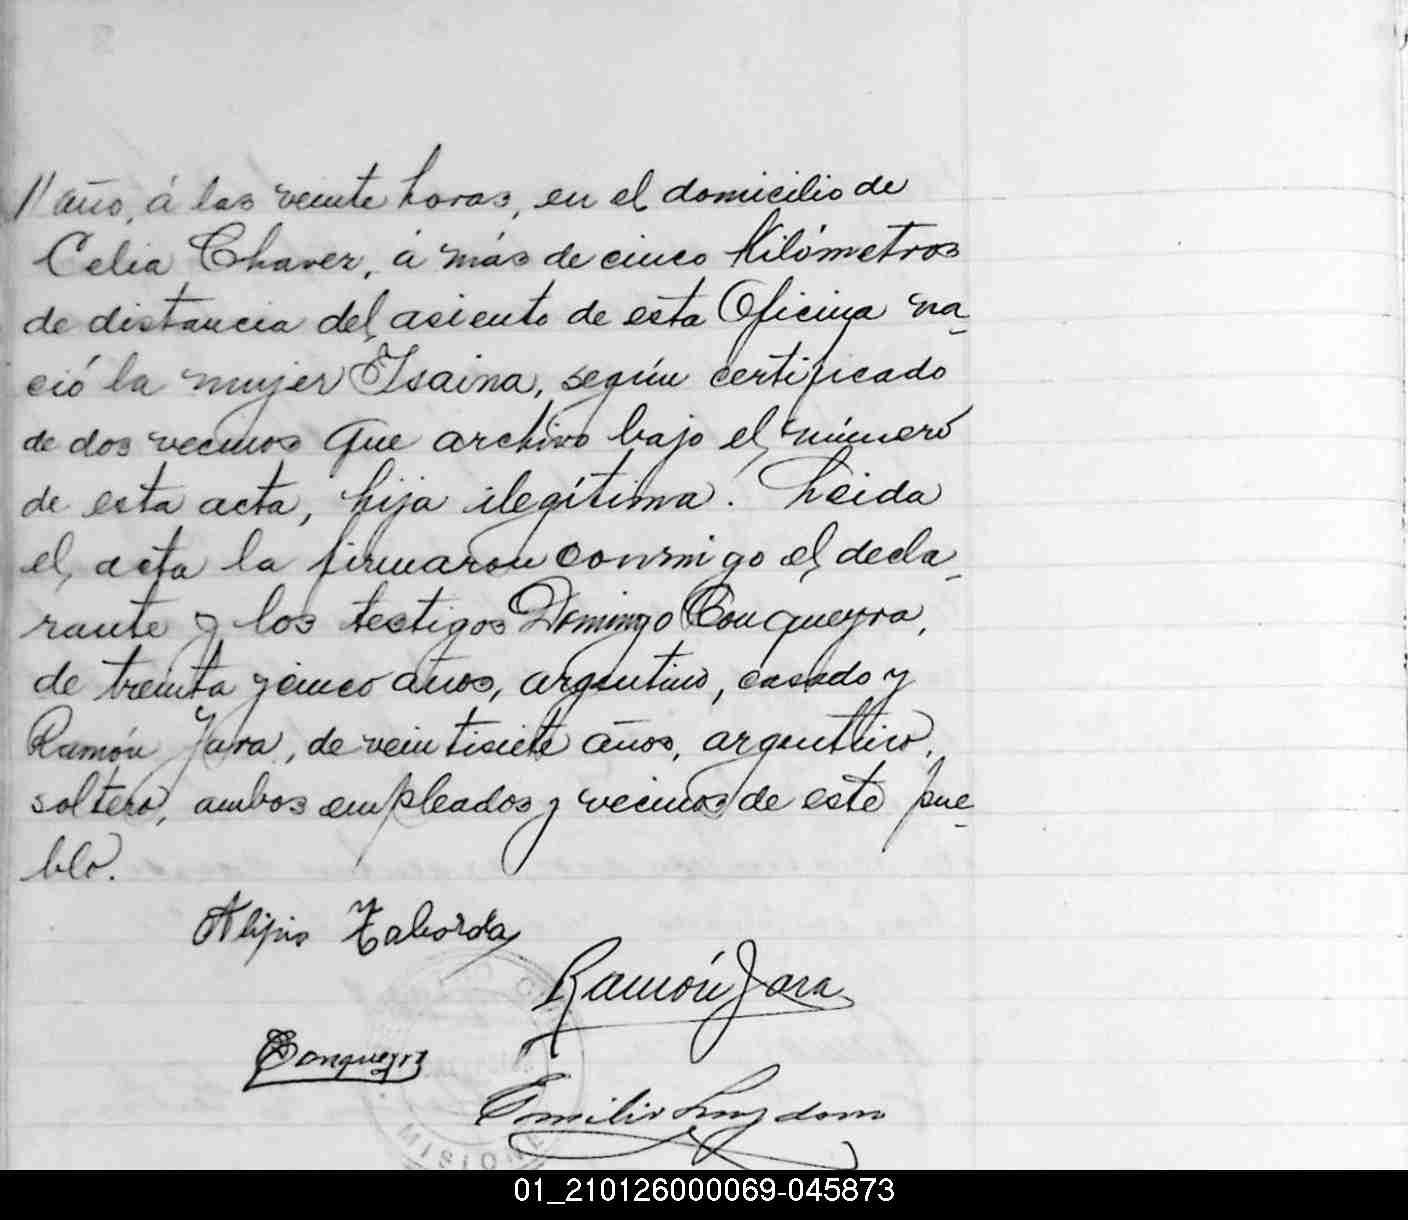 // año, á las veinte horas, en el domicilio de
Celia Chaver, á más de cinco Kilómetros
de distancia del asiento de esta Oficina na-
ció la mujer Isaina, según certificado
de dos vecinos que archivo bajo el número
de esta acta, hija ilegítima. Leida
el acta la firmaron conmigo el decla-
rante y los testigos Domingo Conqueyra,
de treinta y cinco años, argentino, casado y
Ramón Jara, de veintisiete años, argentino,
soltero, ambos empleados y vecinos de este pue-
blo.
Alipio Taborda
Ramón Jara
Conqueyra
Emilio
MISIONE
01_210126000069-045873